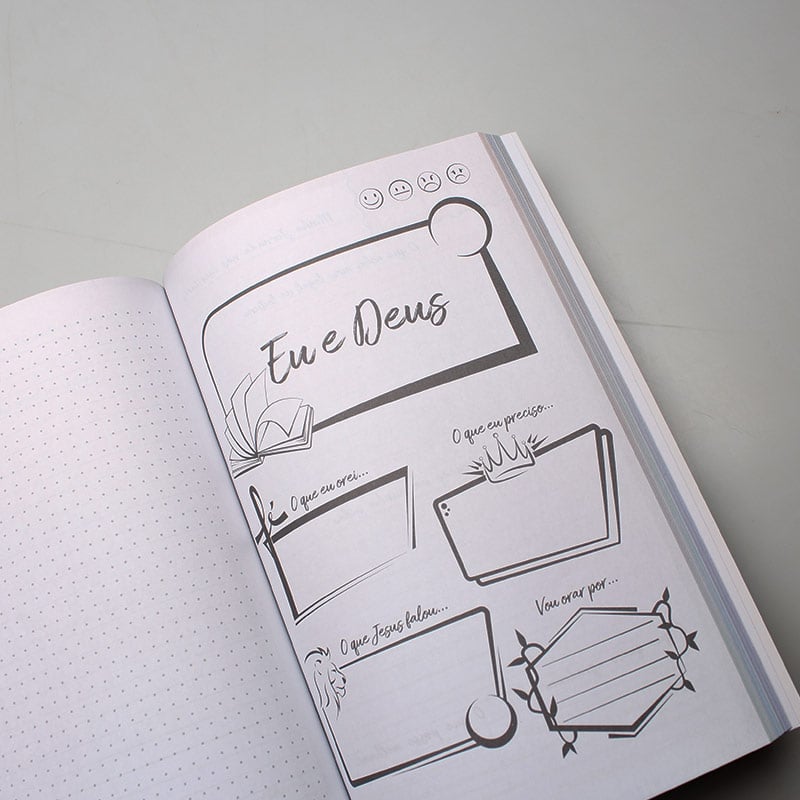 Eu e Deus
O que eu preciso...
fé
O que eu orei...
O que Jesus falou...
Vou orar por...